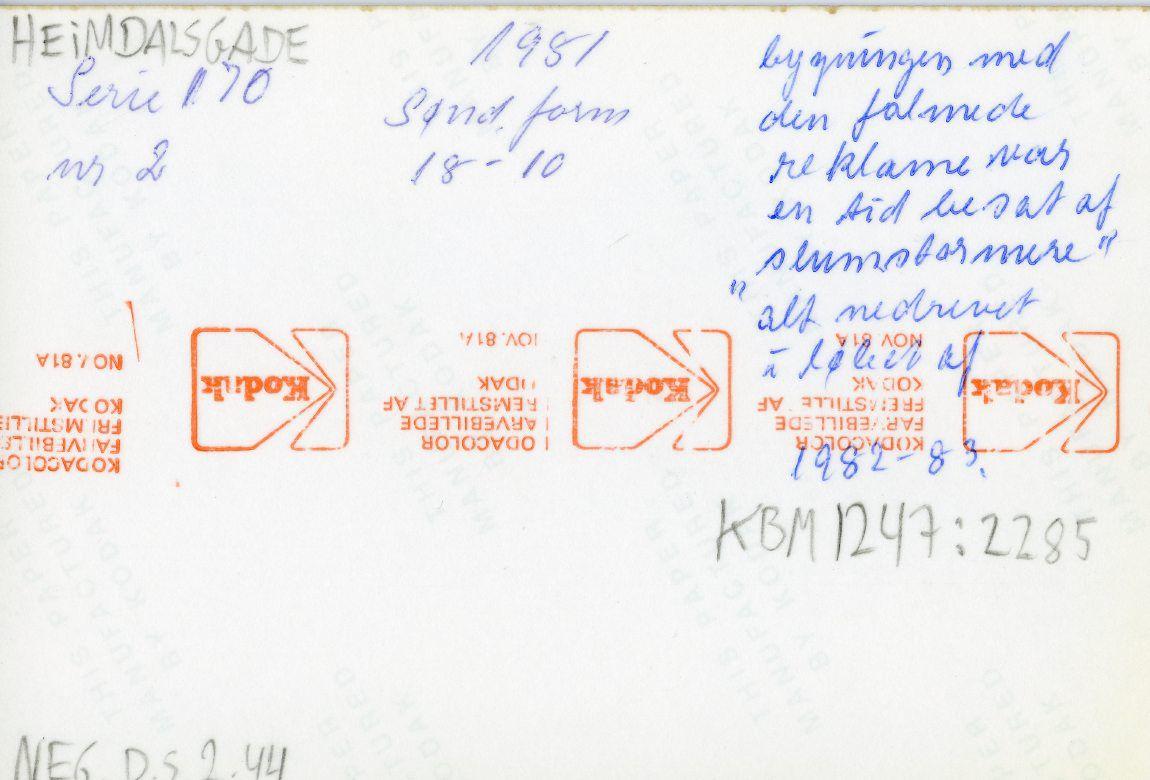 HEIMDALSGADE
Serie 170
nr 2
1981
Sønd. form
18-10
bygningen med
den falmede
reklame var
en tid besat af
"slumstormere"
alt nedrevet
i løbet af
1982-83.
KBM 1247:2285
NEG. D.S 2.44
Kodak
NOV. 81A
KODAK
FREMSTILLET AF
FARVEBILLEDE
KODACOLOR
Kodak
NOV. 81A
KODAK
FREMSTILLET AF
FARVEBILLEDE
KODACOLOR
Kodak
NOV. 81A
KODAK
FREMSTILLE
FARVEBILLE
KODACOLOR
THIS PAPER
MANUFACTURED
BY KODAK